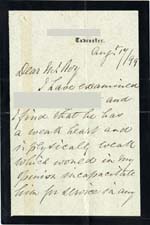 Tadcaster.
Aug. 14/99
Dear Mr Roy
I have examined
and
I find that he has
a weak heart and
is physically weak
which would in my
opinion incapacitate
him for service in any